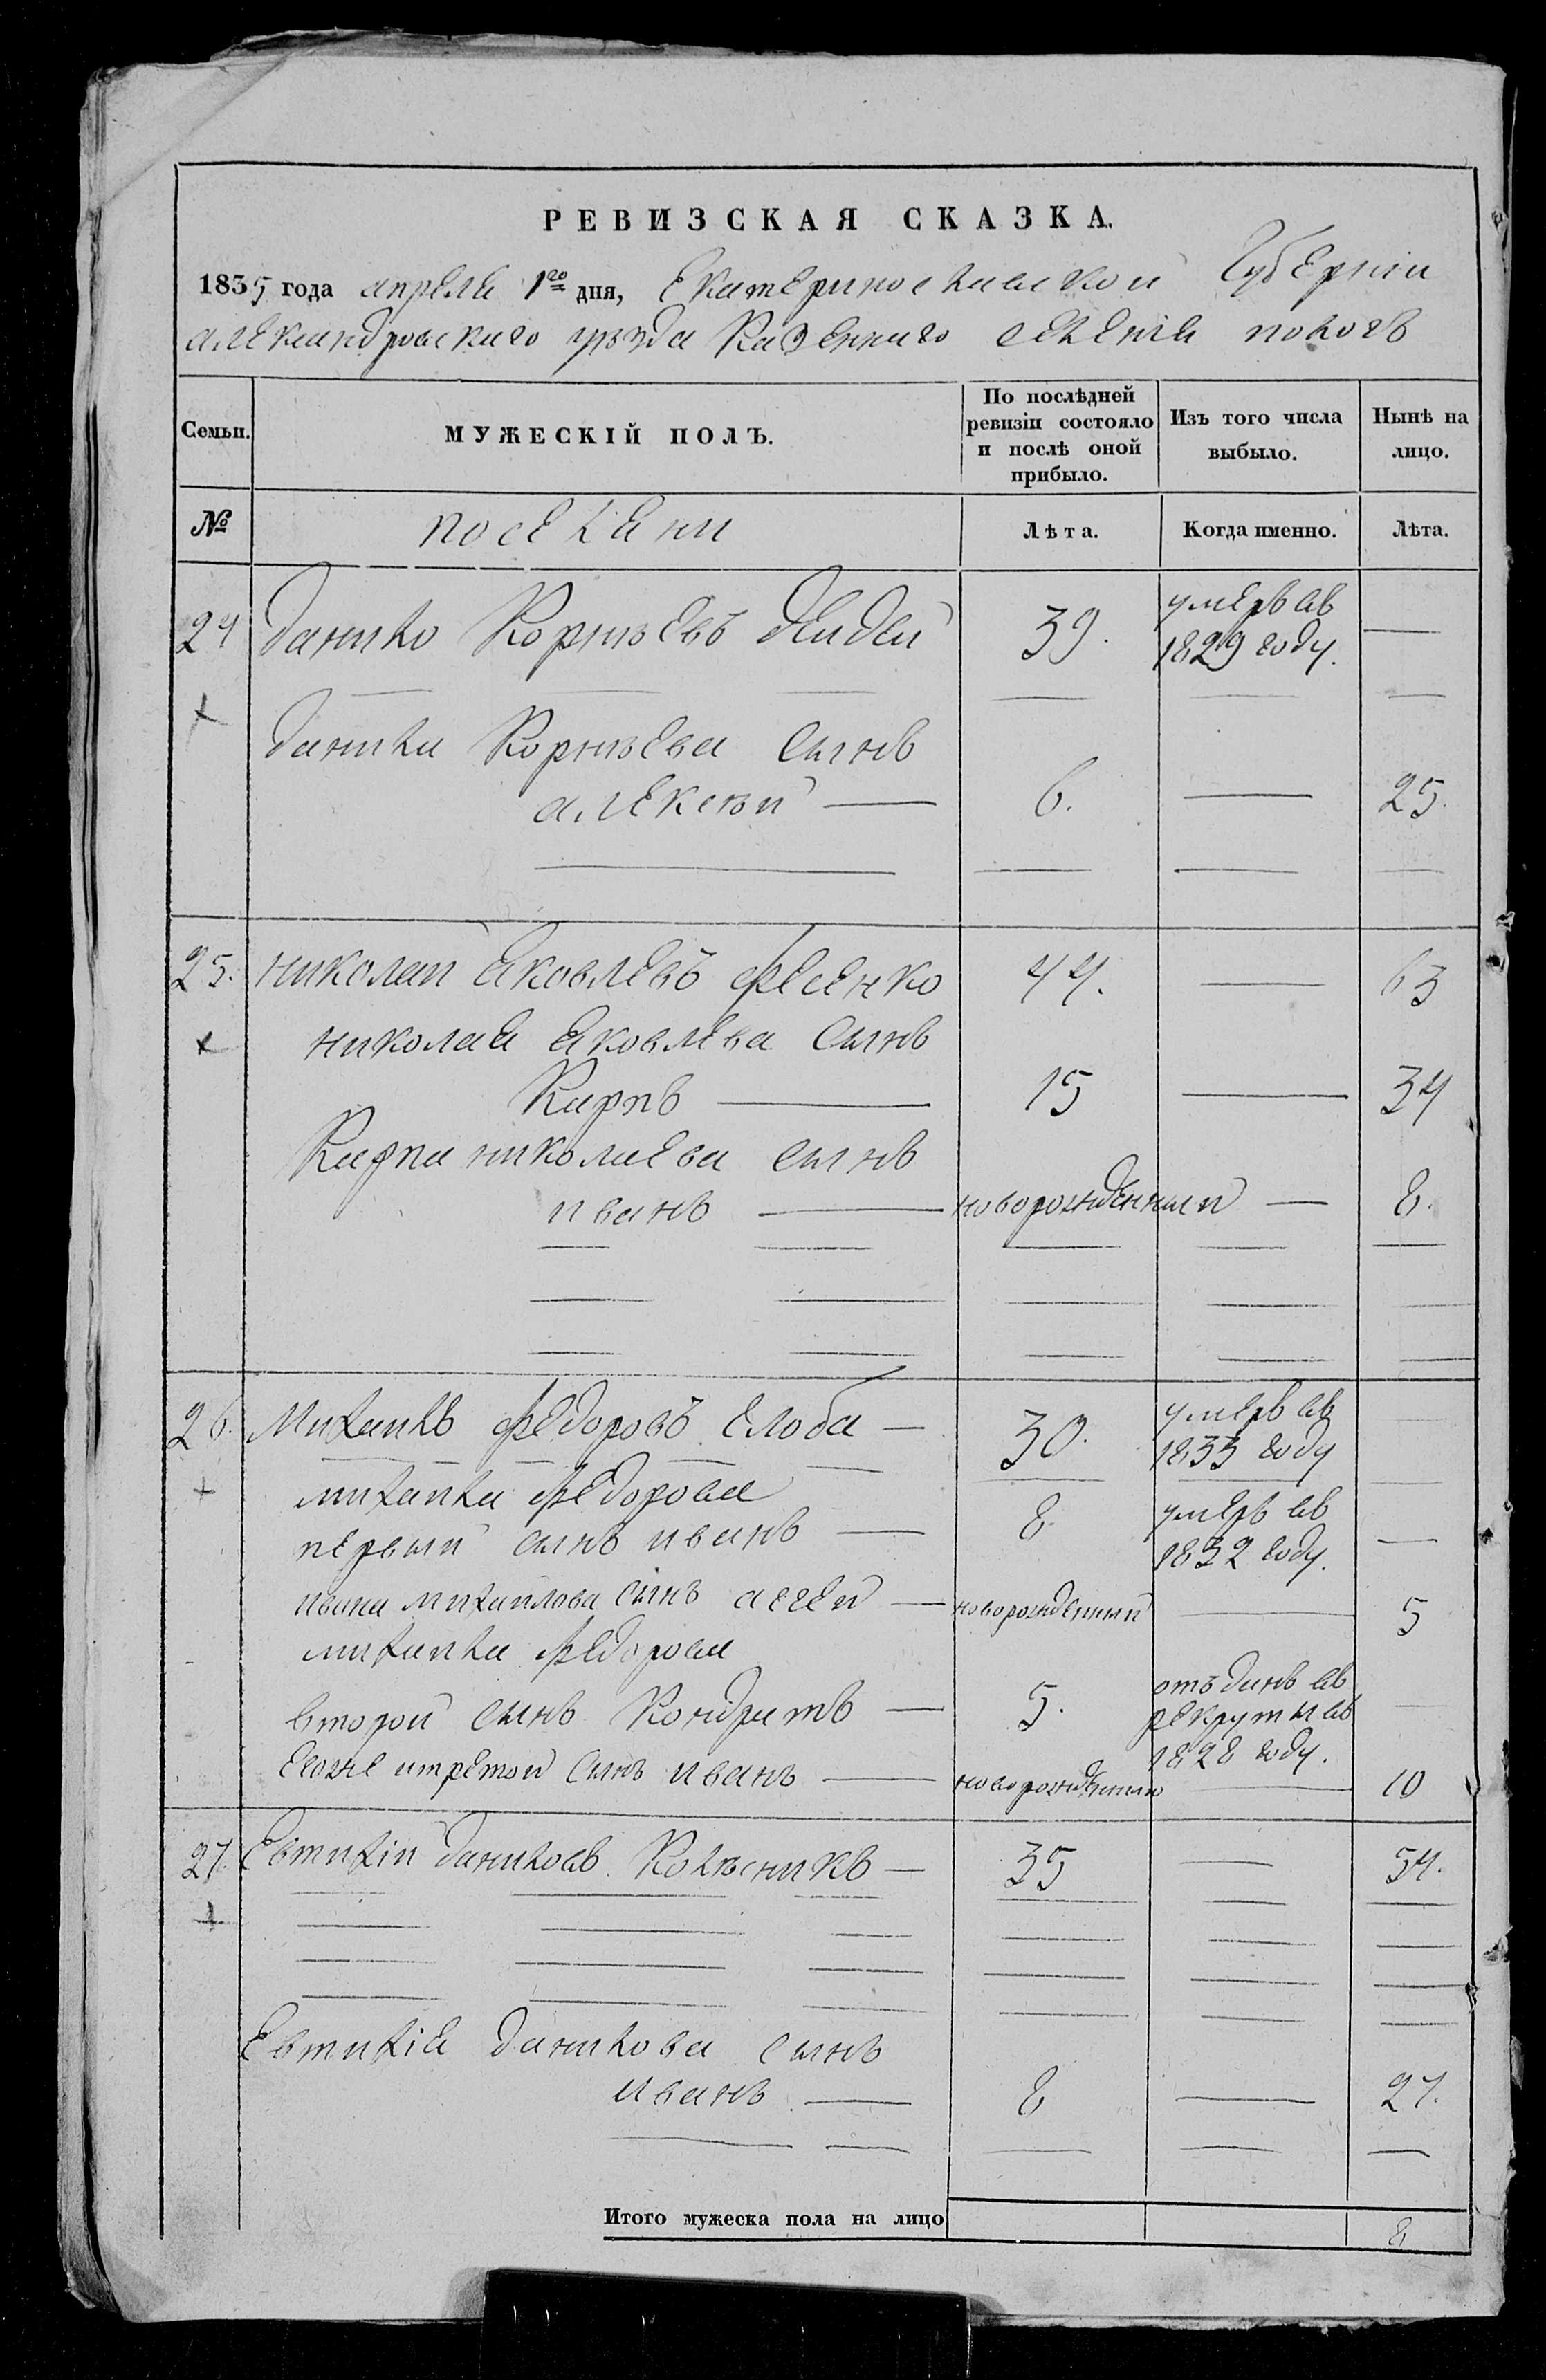 РЕВИЗСКАЯ СКАЗКА.
1835 года апреля 1го дня, Екатеринославской Губернии
александровскаго уѣзда Казеннаго селения пологъ
Семьи. МУЖЕСКІЙ ПОЛЪ. По послѣдней ревизіи состояло и послѣ оной прибыло. Изъ того числа выбыло. Нынѣ на лицо.
№ поселяни Лѣта. Когда именно. Лѣта.
24 данило Корнѣевъ 39. умеръ въ 1829 году. —
данила Корнѣева сынъ
алексѣй — 6. — 25.
25. николай яковлевъ фесенко 44. — 63
николая яковлева сынъ
Карпъ — 15 — 34
Карпа николаева сынъ
иванъ — новорожденный — 8.
26. Михаилъ федоровъ слоба — 30. умеръ въ 1833 году —
михаила федорова
первый сынъ иванъ — 8. умеръ въ 1832 году. —
ивана михайлова сынъ — новорожденный — 5
михаила федорова
второй сынъ Кондратъ — 5. отъданъ въ рекруты въ 1828 году. —
Евоже итретой сынъ иванъ — новорожденный — 10
27. Евтихій даниловъ Колѣсникъ — 35 — 54.
Евтихія данилова сынъ
иванъ — 8 — 27.
Итого мужеска пола на лицо 8